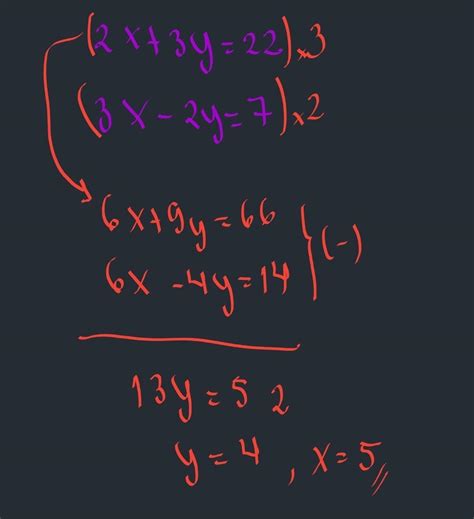 (2x+3y=22)×3
(3x-2y=7)×2
6x+9y=66
6x-4y=14 } (-)
13y=52
y=4, x=5